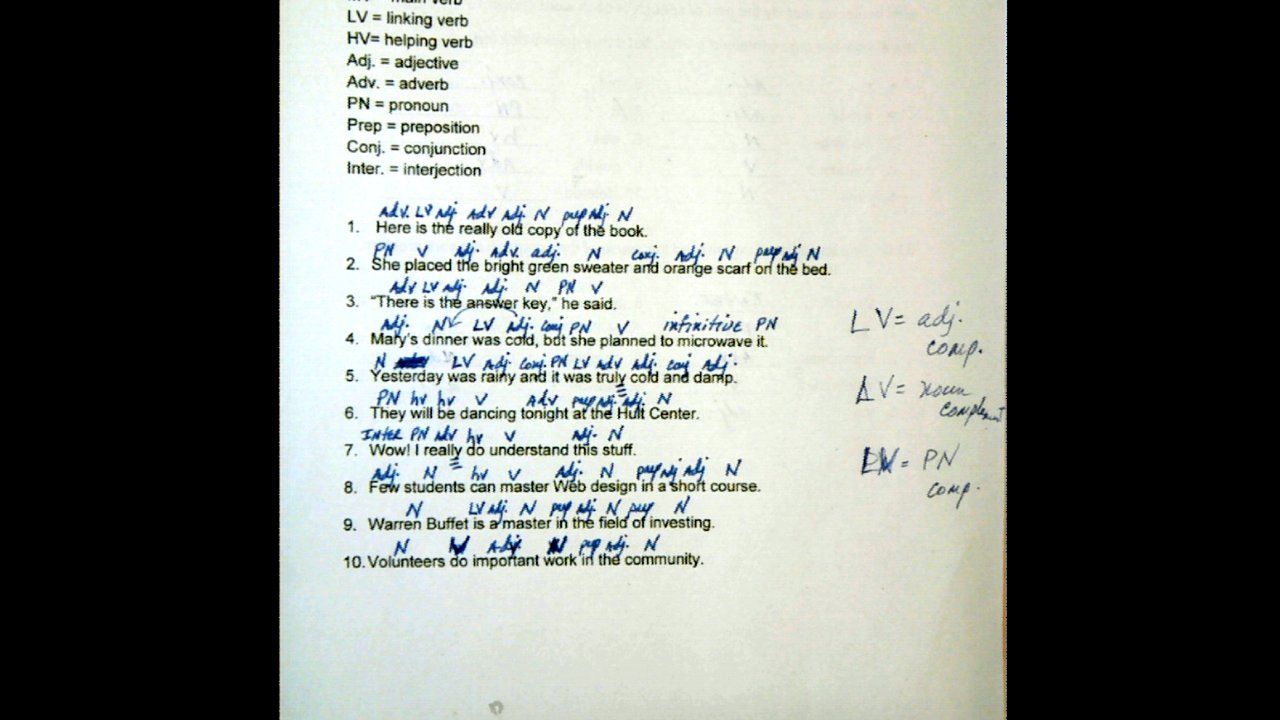 verb
LV = linking verb
HV= helping verb
Adj. = adjective
Adv. = adverb
PN = pronoun
Prep = preposition
Conj. = conjunction
Inter. = interjection
Adv. LV Adj Adv Adj. N prep Adj. N
1. Here is the really old copy of the book.
PN V Adj. Adv. adj. N conj. Adj. N prep Adj N
2. She placed the bright green sweater and orange scarf on the bed.
Adv LV Adj. Adj. N PN V
3. "There is the answer key," he said.
Adj. N LV Adj. conj PN V infinitive PN
4. Mary's dinner was cold, but she planned to microwave it.
N LV Adj. conj. PN LV Adv Adj. conj Adj.
5. Yesterday was rainy and it was truly cold and damp.
PN hv hv V Adv prep Adj. Adj. N
6. They will be dancing tonight at the Hult Center.
INTER PN Adv hv V Adj. N
7. Wow! I really do understand this stuff.
Adj. N hv V Adj. N prep Adj Adj N
8. Few students can master Web design in a short course.
N LV Adj. N prep Adj. N prep N
9. Warren Buffet is a master in the field of investing.
N V Adj. N prep Adj. N
10. Volunteers do important work in the community.
LV = adj.
comp.
LV = noun
complement
LV = PN
comp.